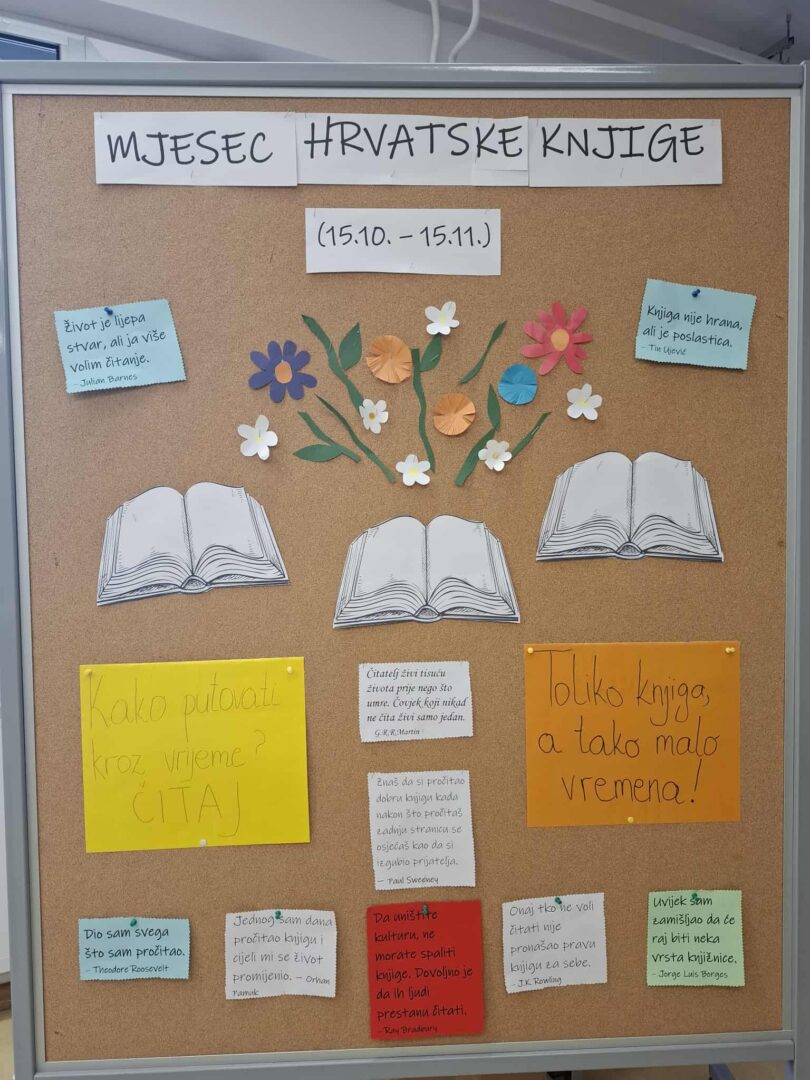 MJESEC HRVATSKE KNJIGE
(15.10. – 15.11.)
Život je lijepa
stvar, ali ja više
volim čitanje.
– Julian Barnes
Knjiga nije hrana,
ali je poslastica.
– Tin Ujević
Kako putovati
kroz vrijeme?
ČITAJ
Čitatelj živi tisuću
života prije nego što
umre. Čovjek koji nikad
ne čita živi samo jedan.
G.R.R.Martin
Toliko knjiga,
a tako malo
vremena!
Znaš da si pročitao
dobru knjigu kada
nakon što pročitaš
zadnju stranicu se
osjećaš kao da si
izgubio prijatelja.
— Paul Sweeney
Dio sam svega
što sam pročitao.
– Theodore Roosevelt
Jednog sam dana
pročitao knjigu i
cijeli mi se život
promijenio. – Orhan
Pamuk
Da uništite
kulturu, ne
morate spaliti
knjige. Dovoljno je
da ih ljudi
prestanu čitati.
– Ray Bradbury
Onaj tko ne voli
čitati nije
pronašao pravu
knjigu za sebe.
– J.K. Rowling
Uvijek sam
zamišljao da će
raj biti neka
vrsta knjižnice.
– Jorge Luis Borges